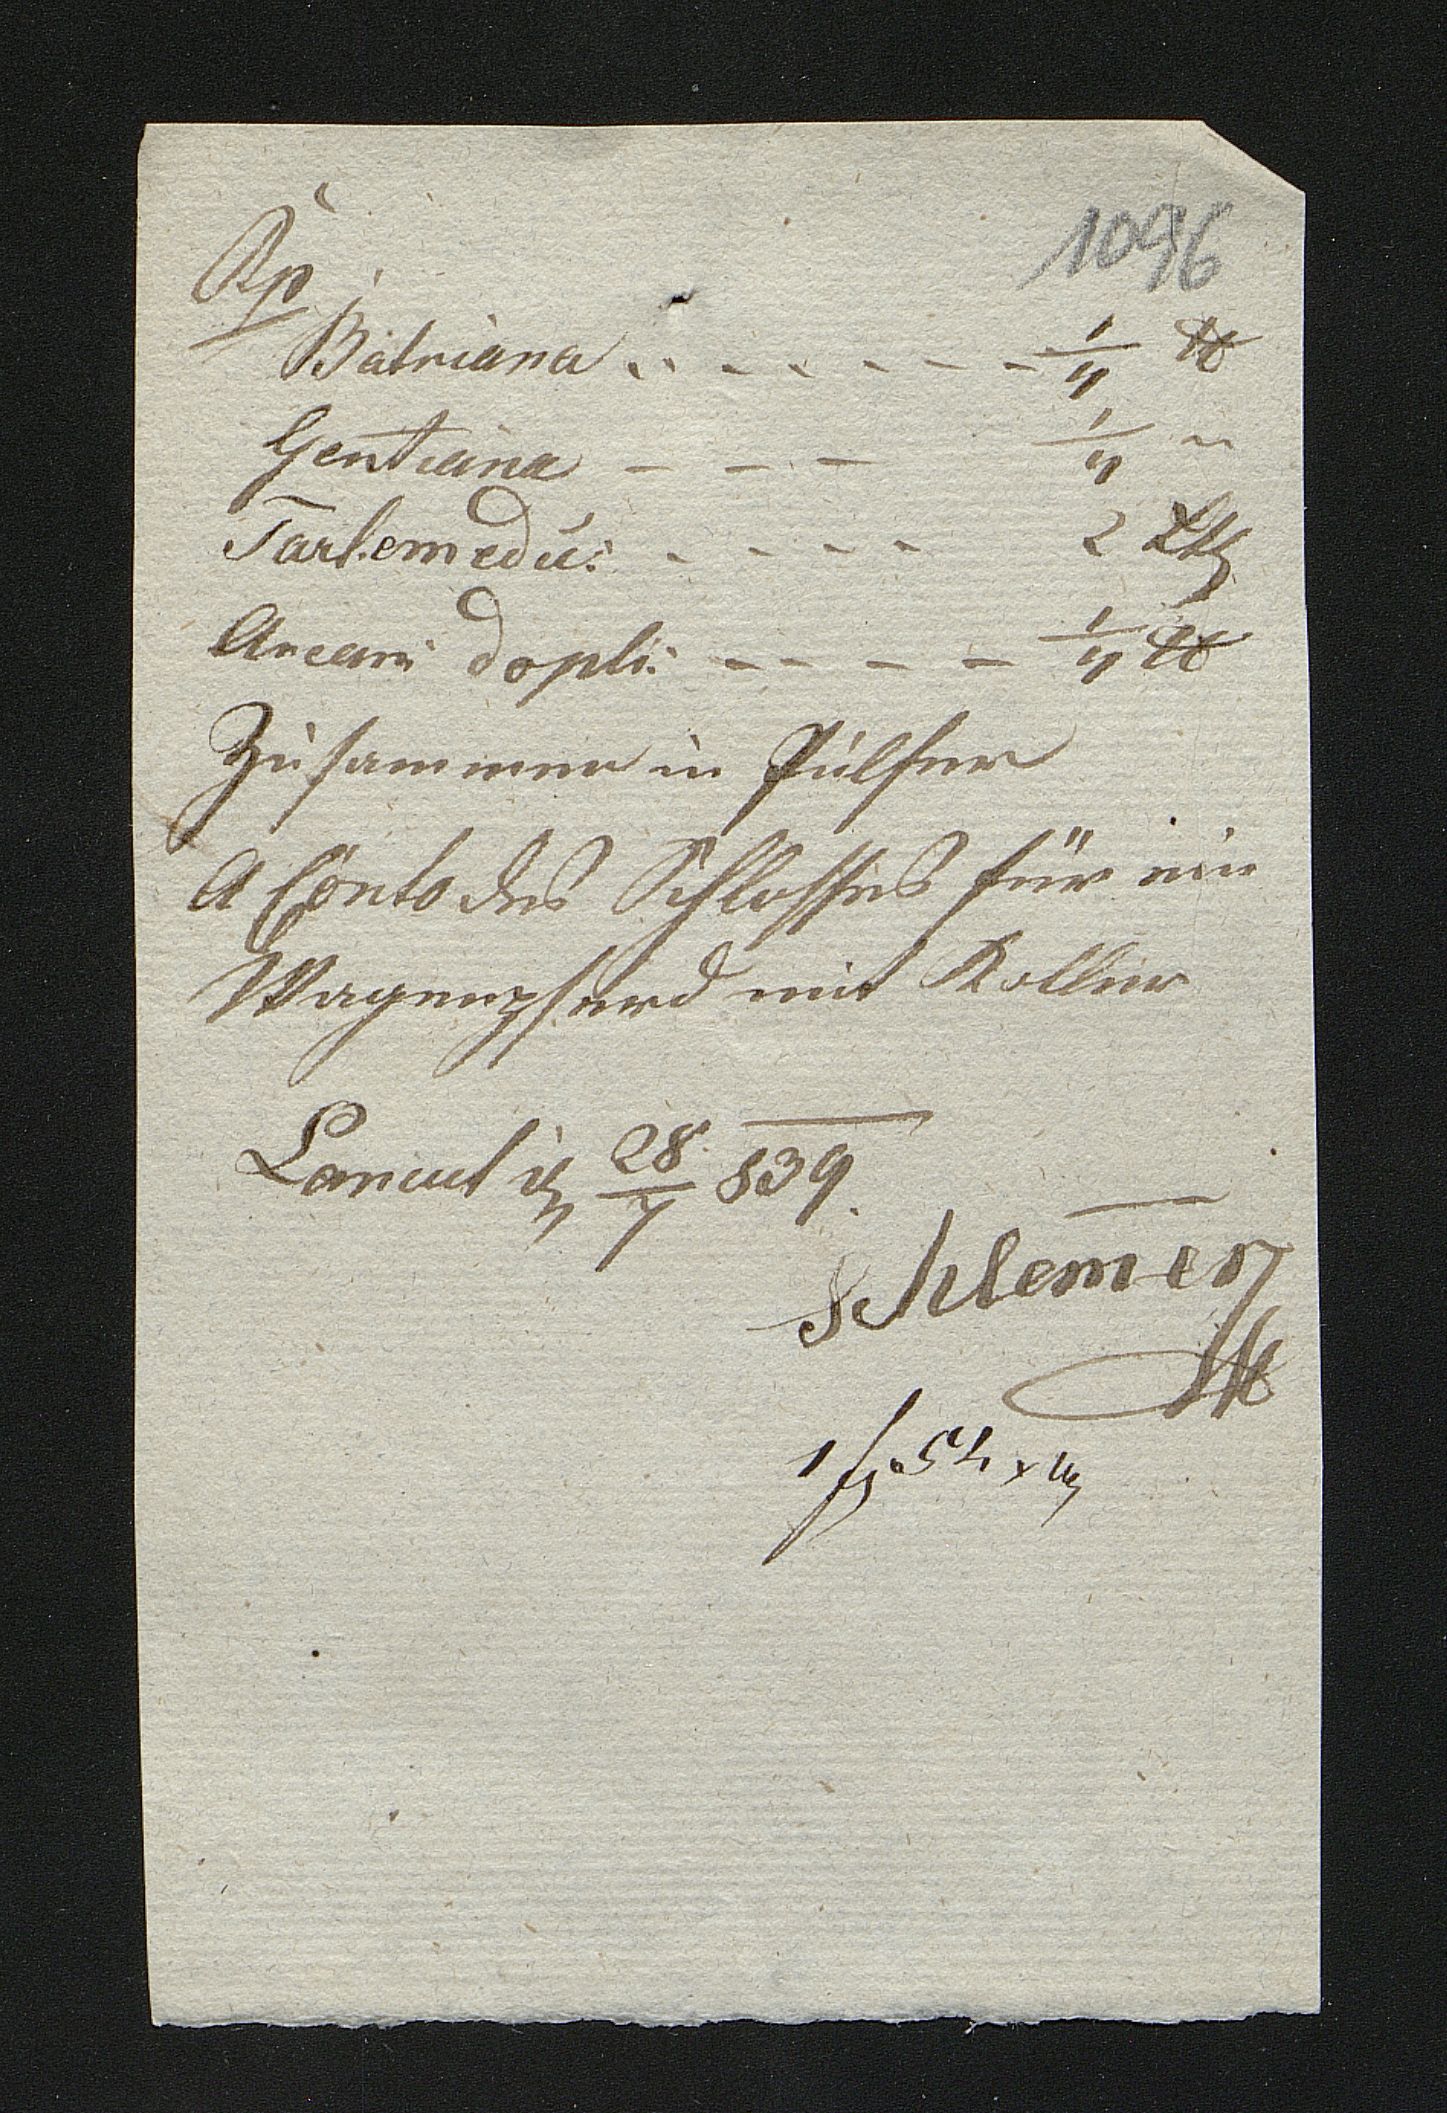 1096
Rp
Batriana - - - - - - - 1/4 ℔
Gentiana - - - 1/4 "
Tart.emedic: - - - - 2 Lth
Arcani dopli: - - - - 1/4 ℔
Zusammen in Pulfer
A Conto des Schlosses für ein
Wagenpferd mit Koller
Lancut 28/7 839.
Schlemer
1 f. 54 x